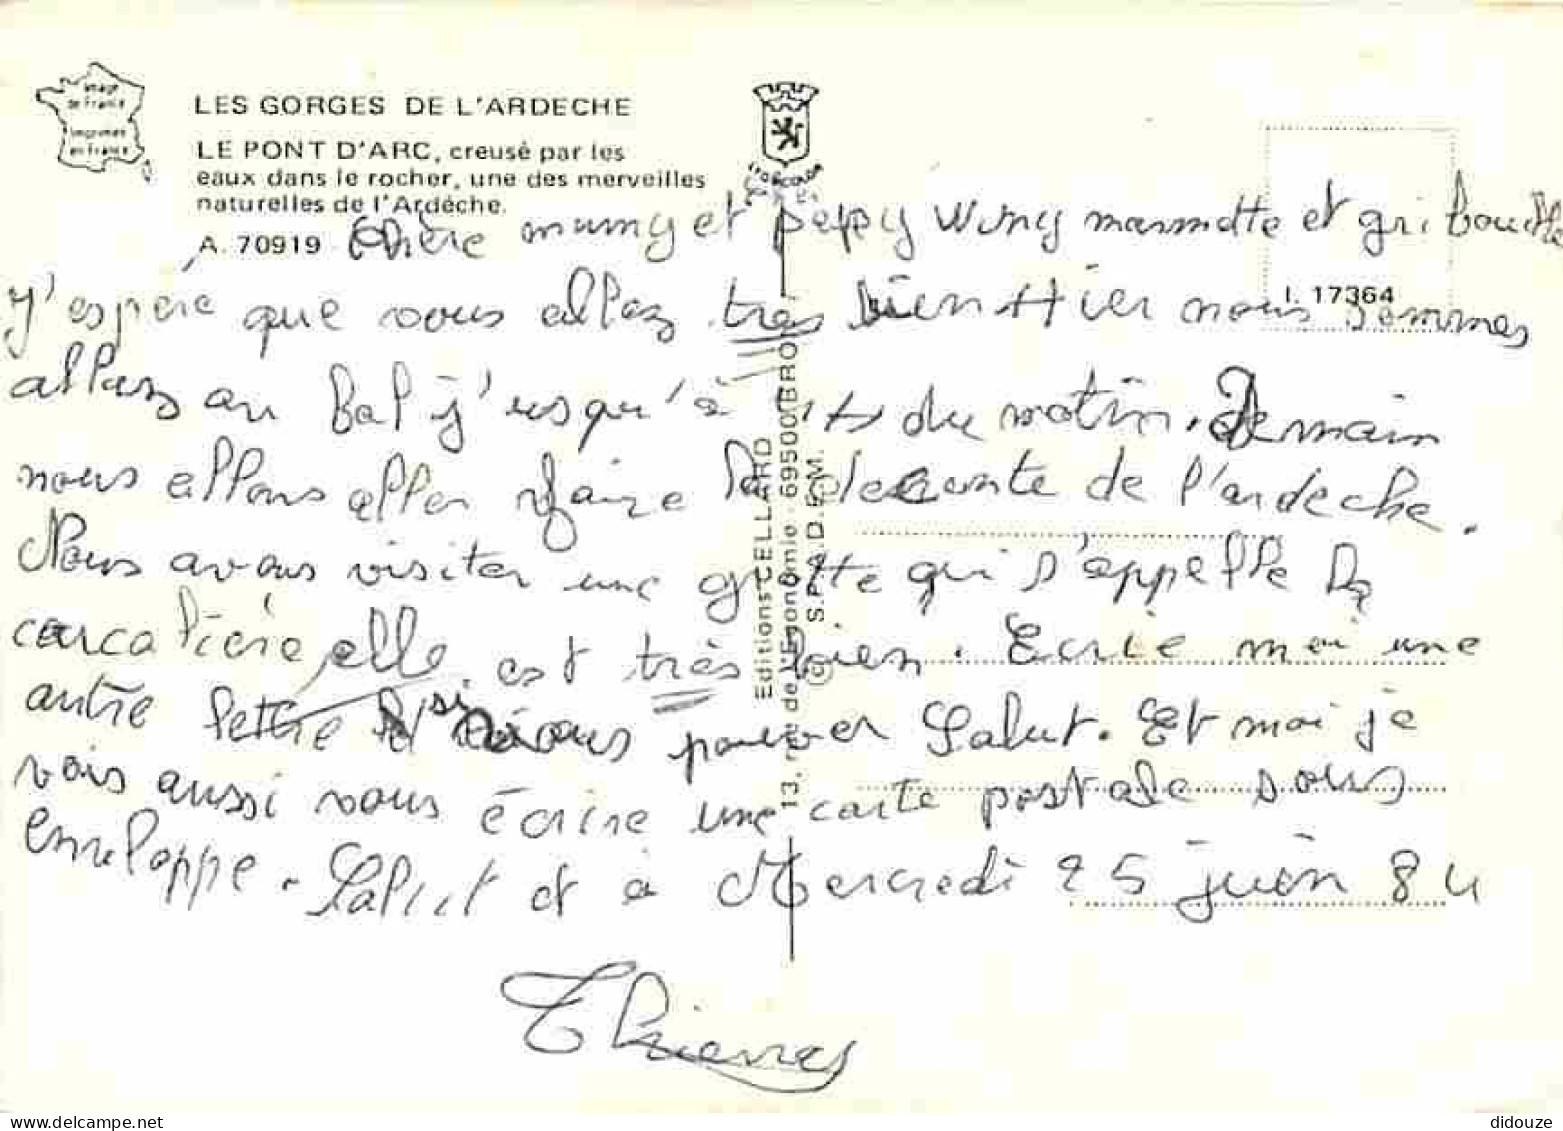 Image
de France
Imprimée
en France
LES GORGES DE L'ARDECHE
LE PONT D'ARC, creusé par les
eaux dans le rocher, une des merveilles
naturelles de l'Ardèche.
A. 70919
I. 17364
Editions CELLARD
13, rue de l'Egonomie - 69500 BRON
© S.P.A.D.E.M.
chère mumy et peppy winny marmotte et gribouille
J'espère que vous allez très bien Hier nous sommes
allez au bal j'usqu'à H du matin. Demain
nous allons aller faire la decente de l'ardeche.
Nous avons visiter une grotte qui s'appelle la
carcalière elle est très bien. Ecrie moi une
autre lettre si vous pouver Salut. Et moi je
vais aussi vous écrire une carte postale sous
enveloppe. Salut et à Mercredi 25 juin 84
Thierry
didouze